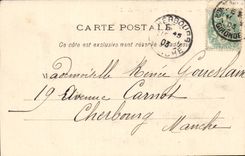 CARTE POSTALE
Ce côté est exclusivement réservé à l'adresse
CHERBOURG
45
03
GIRONDE
Mademoiselle Renée
19 Avenue Carnot
Cherbourg
Manche